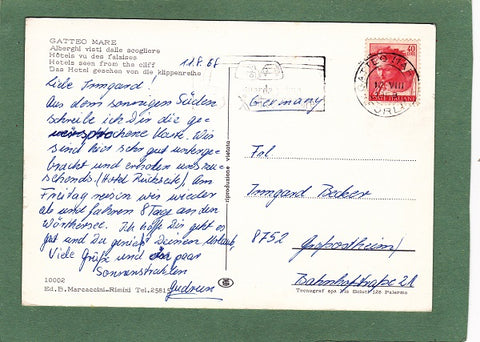 GATTEO MARE
Alberghi visti dalle scogliere
Hôtels vu des falaises
Hotels seen from the cliff
Das Hotel gesehen von die klippenreihe
11.8.66
Liebe Irmgard!
Aus dem sonnigen Süden
schreibe ich Dir die ge-
versprochene Karte. Wir
sind hier sehr gut unterge-
bracht und erholen uns zu-
sehends (Hotel Rückseite). Am
Freitag reisen wir wieder
ab und fahren 8 Tage an den
Wörthersee. Ich hoffe Dir geht es
gut und Du genießt Deinen Urlaub,
Viele Grüße und ein paar
Sonnenstrahlen
Gudrun
10002
Ed. D. Marcaccini-Rimini Tel. 2581
riproduzione vietata
40
POSTE ITALIANE
GATTEO MARE
VIII
FORLI
Germany
Frl.
Irmgard Beker
8752
Bahnhofstraße 21
Palermo